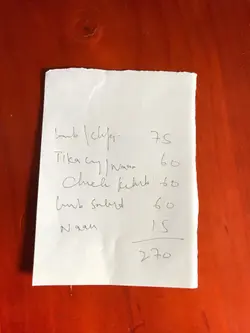 lamb/chp 75
Tika cury/naan 60
Chick kebab 60
lamb 60
Naan 15
270